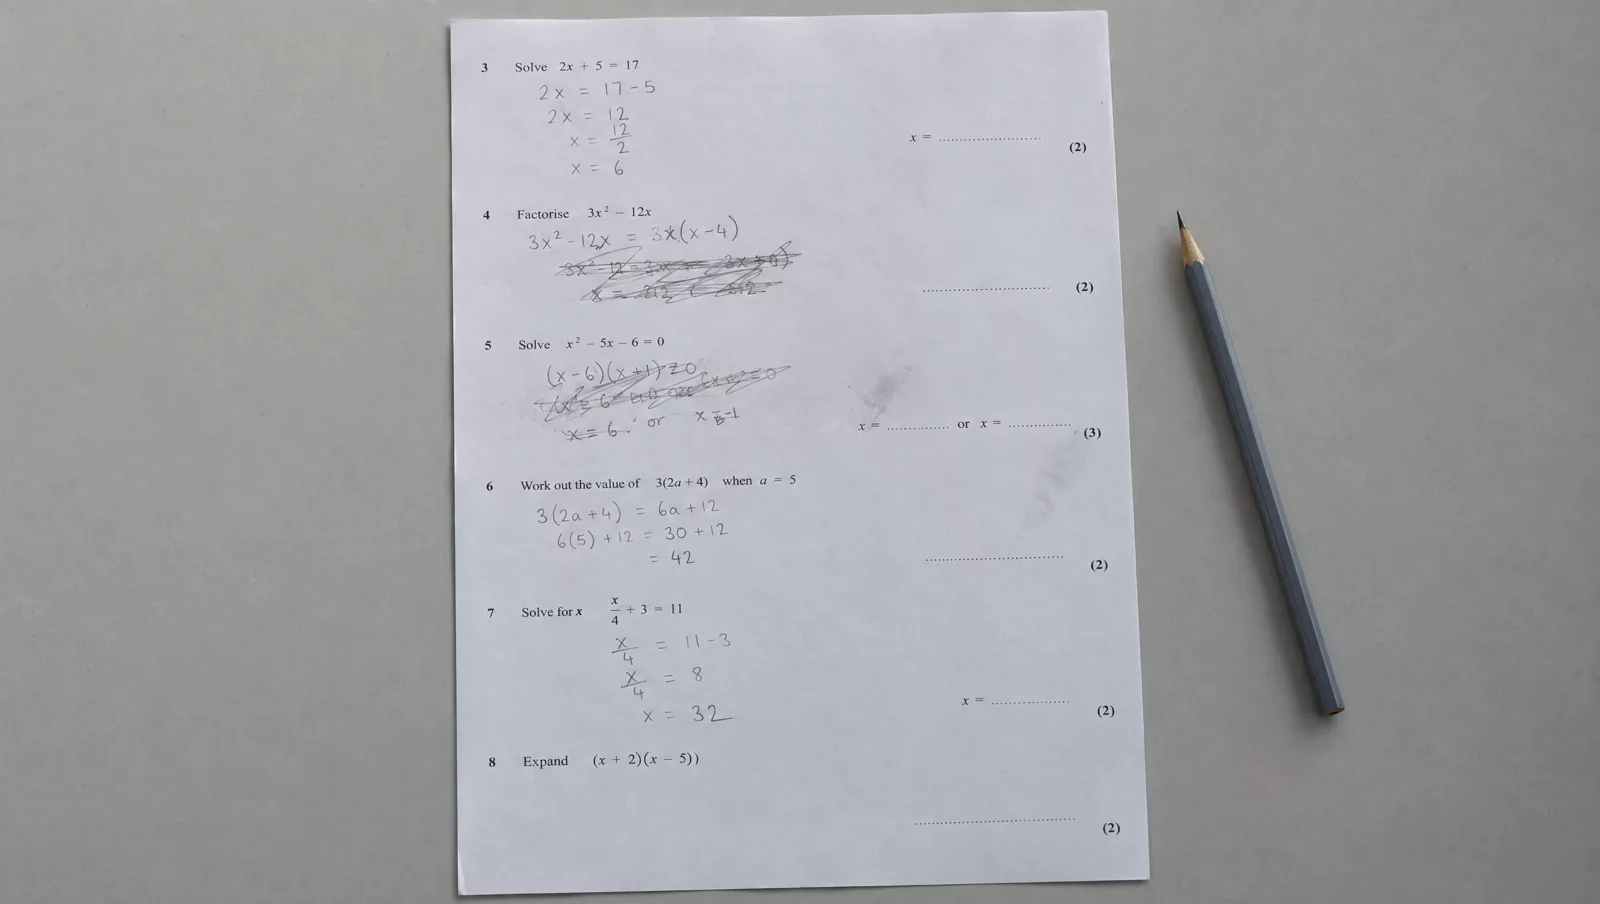 3 Solve 2x + 5 = 17
2x = 17 - 5
2x = 12
x = 12/2
x = 6
x = ........................
(2)
4 Factorise 3x² − 12x
3x² - 12x = 3x(x - 4)
.............................. (2)
5 Solve x² − 5x − 6 = 0
(x - 6)(x + 1) = 0
x = 6 or x = -1
x = ............... or x = ............... (3)
6 Work out the value of 3(2a + 4) when a = 5
3(2a + 4) = 6a + 12
6(5) + 12 = 30 + 12
= 42
................................. (2)
7 Solve for x x/4 + 3 = 11
x/4 = 11 - 3
x/4 = 8
x = 32
x = ................... (2)
8 Expand (x + 2)(x − 5))
...................................... (2)